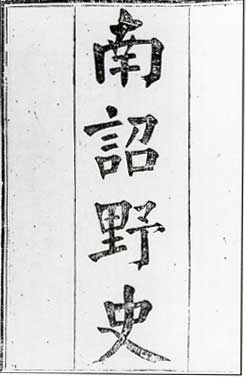 南詔野史